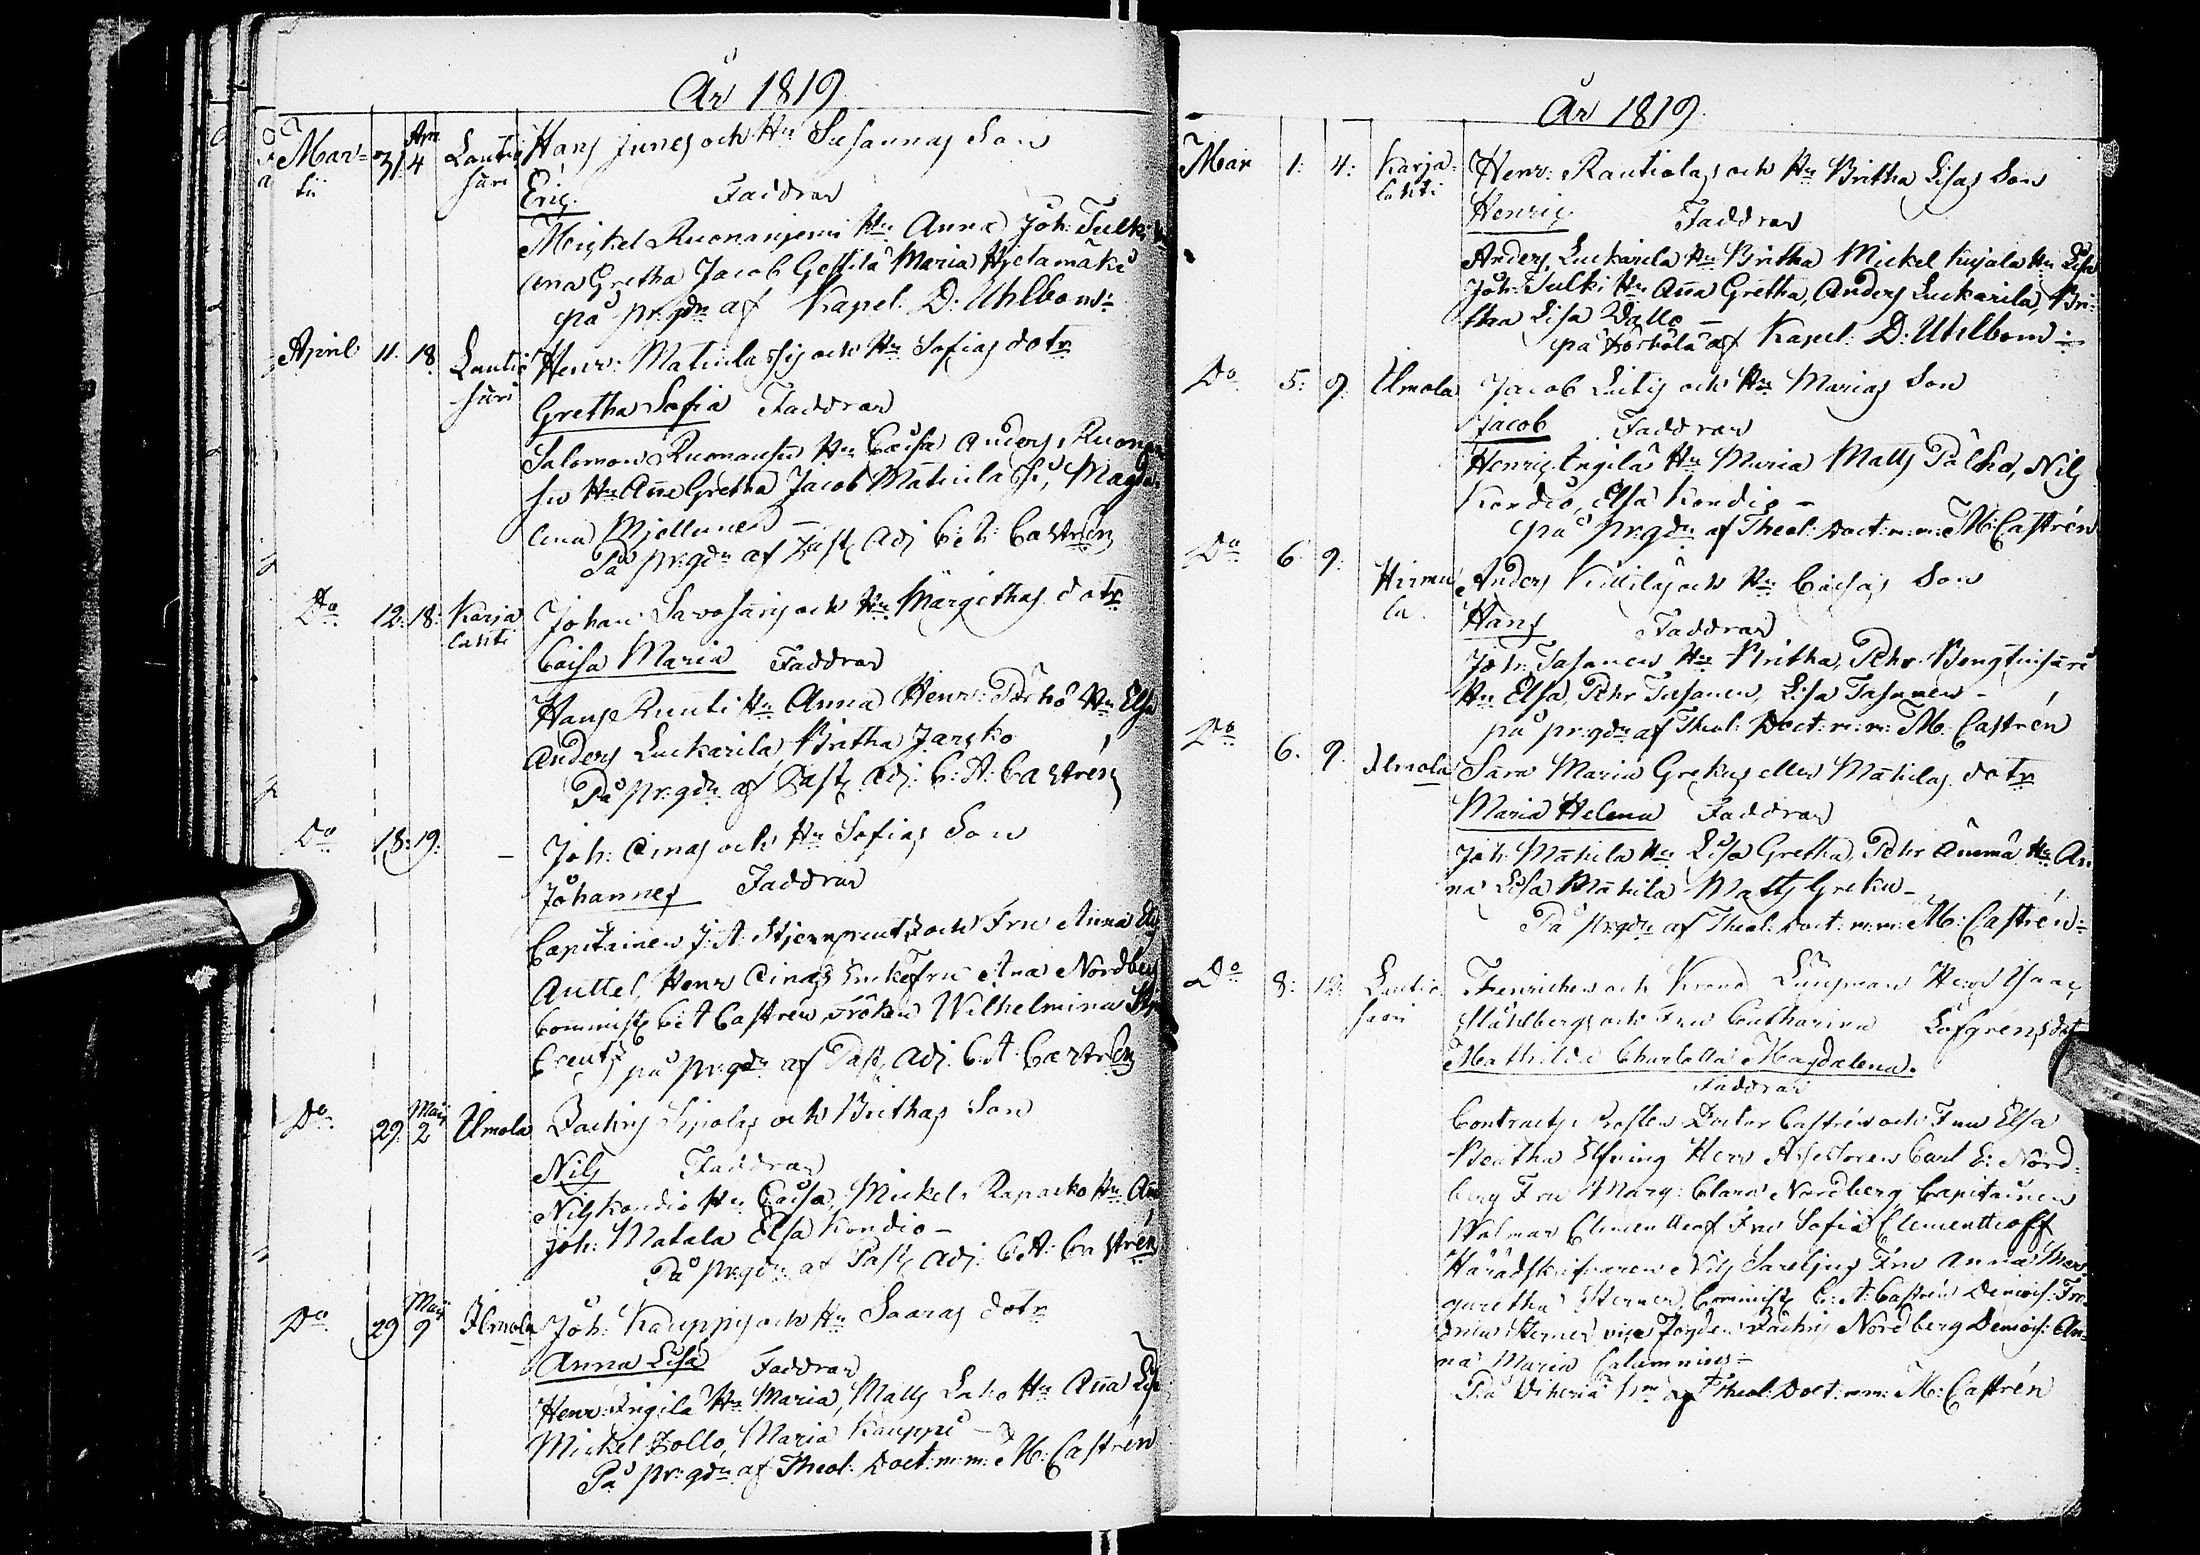 År 1819
Martii 31. Apr 4 Lautiosaari Hans Junes och Hu Susannas Son
Eric. Faddrar
Mickel Ruonanjemi Hu Anna Joh: Tulki
Gretha Jacob Maria Hietamäki
på pr:gdn af Kapel: D: Uhlbom:
April 11. 18. Lautiosaari Henr: Matinlassis och Hu Sofias dotr
Gretha Sofia Faddrar
Salomon Hu Caisa Anders Ruonan
Hu Aña Gretha Jacob Matinlassi, Magda
lena
På pr:gdn af Past: Adj C: A: Castrén
Do 12: 18: Karjalahti Johan Savosaaris och Hu Margethas dotr
Caisa Maria Faddrar
Hans Runti Hu Anna Henr: Hu Elsa
Anders Luckarila, Britha Jarsko
På pr:gdn af Past: Adj: C: A: Castrén
Do 18: 19: – Joh: Cinas och Hu Sofias Son
Johannes Faddrar
Capitainen J: A: Stjerncreutz och Fru Anna
Henr Cinas Fru Ana Nordberg
Commis: C: A Castren, Fröken Wilhelmina
Creutz på pr:gdn af Past: Adj: C: A: Castrén
Do 29. Maij 2 Elmola Zachris Sipolas och Brithas Son
Nils Faddrar
Nils Kondio Hu Caisa, Mickel Hu An
Joh: Matala Elsa Kondio –
På pr:gdn af Past: Adj: C: A: Castrén
Do 29 Maij 9 Elmola Joh: Kauppis och Hu Saaras dotr
Anna Lisa Faddrar
Henr: Ingila Hu Maria, Matts Laho Hu Aña Lis
Mickel Zollo, Maria Kauppi –
På pr:gdn af Theol: Doct: m:m: M: Castrén
År 1819
Mar 1: 4: Karjalahti Henr: Rautiolas och Hu Britha Lisas Son
Henric Faddrar
Anders Luckarila Hu Britha Mickel Kujala Hu Lisa
Joh: Tulki Hu Aña Gretha, Anders Luckarila, Bri-
tha Lisa Wallo –
på förhöla af Kapel: D: Uhlbom:
Do 5: 9: Elmola Jacob Luitis och Hu Marias Son
Jacob Faddrar
Henric Ingila Hu Maria Matts Nils
Kondio, Elsa Kondio –
på pr:gdn af Theol: Doct: m:m: M: Castrén
Do 6 9: Hirmula Anders Killilas och Hu Caisas Son
Hans Faddrar
Joh: Tasanen Hu Britha, Pehr Bengtinsaari
Hu Elsa, Pehr Tasanen, Lisa Tasanen –
på pr:gdn af Theol: Doct: m:m: M: Castrén
Do 6. 9. Elmola Sara Maria Grekus eller Mäkilas dotr
Maria Helena Faddrar
Joh: Mäkila Hu Lisa Gretha, Pehr Ämmä Hu An
na Lisa Mäkila Matts Greku –
På pr:gdn af Theol: Doct: m:m: M: Castrén:
Do 8: 12: Lautiosaari och Krono Länsman Herr Isaac
Ståhlbergs och Fru Catharina Lofgrens dotr
Mathilda Charlotta Magdalena.
Faddrar
Contracts Prosten Doctor Castrén och Fru Elsa
Beatha Elfving Herr Assessoren Carl E: Nord-
berg Fru Marg: Clara Nordberg Capitainen
Walmar Clementeoff Fru Sofia Clementeoff
Häradskrifvaren Nils Fru Anna Mar
garetha Sterner, Commis: C: A: Castrén Demois: Fre
drica Sterner vice Fogden Zachris Nordberg Demois: An-
na Maria Calamnius –
På af Theol: Doct: m:m: M: Castrén